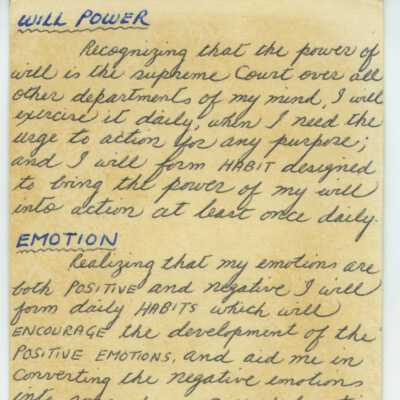 WILL POWER
Recognizing that the power of
will is the supreme Court over all
other departments of my mind, I will
exercise it daily, when I need the
urge to action for any purpose;
and I will form HABIT designed
to bring the power of my will
into action at least once daily.
EMOTION
Realizing that my emotions are
both POSITIVE and negative I will
form daily HABITS which will
ENCOURAGE the development of the
POSITIVE EMOTIONS, and aid me in
Converting the negative emotions
into some